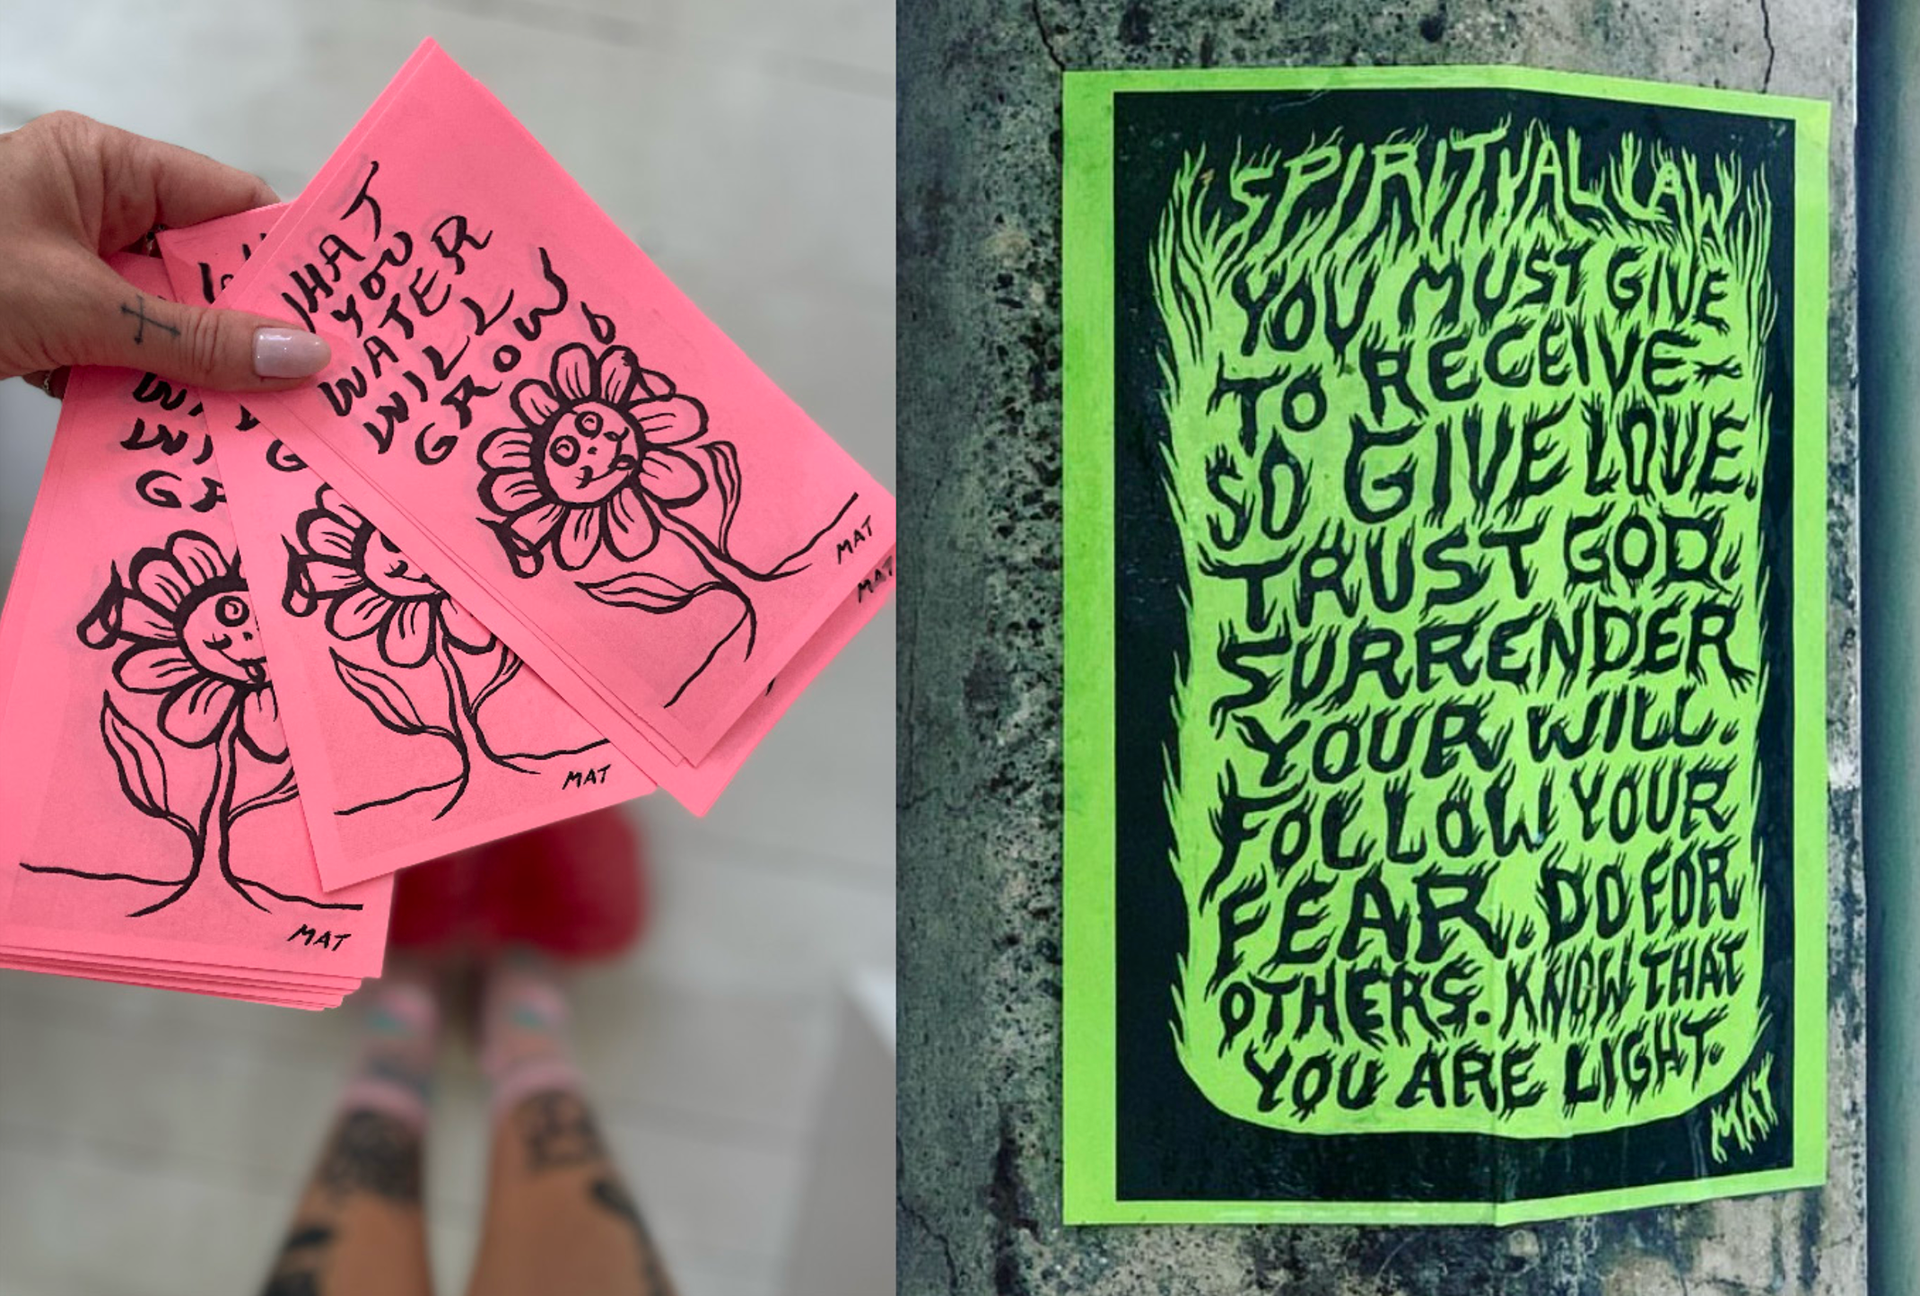 WHAT
YOU
WATER
WILL
GROW
MAT
MAT
G
MAT
WI
GR
MAT
SPIRITUAL LAW
YOU MUST GIVE
TO RECEIVE-
SO GIVE LOVE.
TRUST GOD.
SURRENDER
YOUR WILL.
FOLLOW YOUR
FEAR. DO FOR
OTHERS. KNOW THAT
YOU ARE LIGHT.
MAT